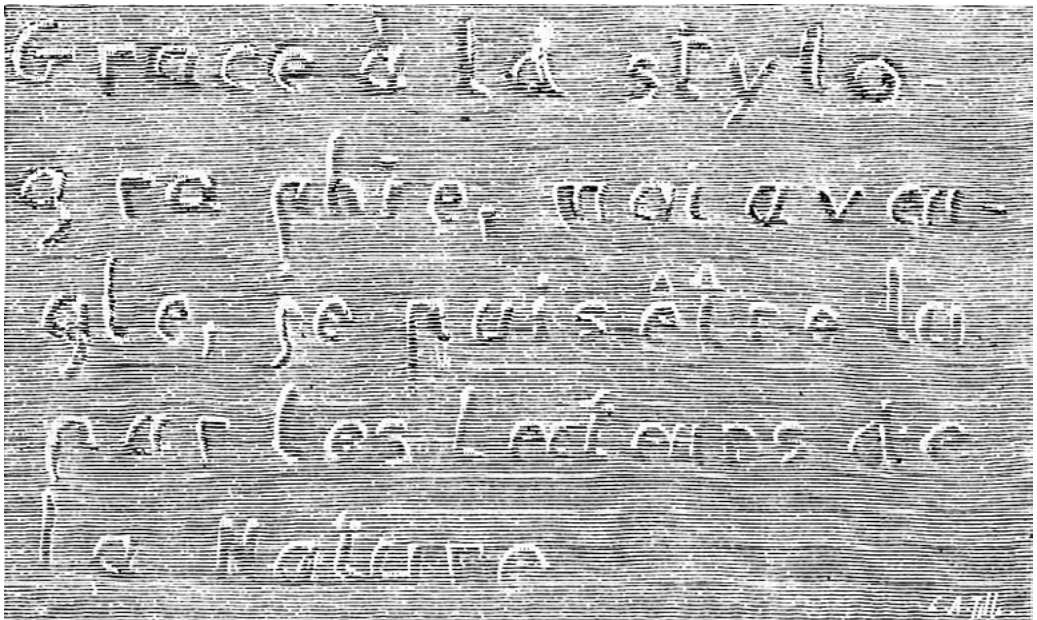 Grâce à la stylo
graphie, moi aveu-
gle, je puis être lu
par les lecteurs de
la Nature